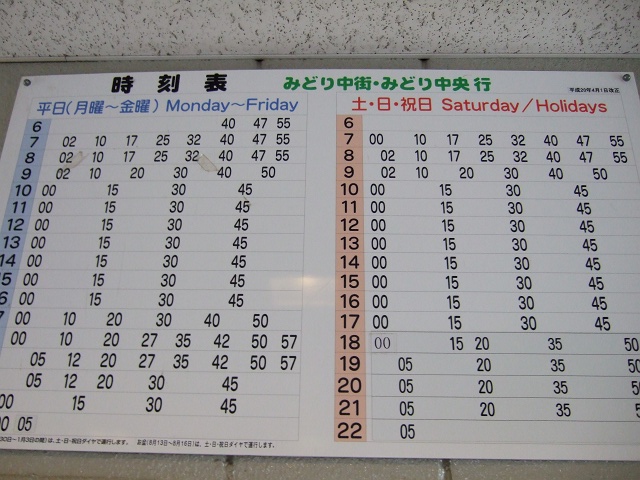 時刻表 みどり中街・みどり中央 行 平成20年4月1日改正
平日(月曜～金曜) Monday～Friday
6 40 47 55
7 02 10 17 25 32 40 47 55
8 02 10 17 25 32 40 47 55
9 02 10 20 30 40 50
10 00 15 30 45
11 00 15 30 45
12 00 15 30 45
13 00 15 30 45
14 00 15 30 45
15 00 15 30 45
6 00 15 30 45
7 00 10 20 30 40 50
00 10 20 27 35 42 50 57
05 12 20 27 35 42 50 57
05 12 20 30 45
00 15 30 45
00 05
土・日・祝日 Saturday／Holidays
6
7 00 10 17 25 32 40 47 55
8 02 10 17 25 32 40 47 55
9 02 10 20 30 40 50
10 00 15 30 45
11 00 15 30 45
12 00 15 30 45
13 00 15 30 45
14 00 15 30 45
15 00 15 30 45
16 00 15 30 45
17 00 15 30 45
18 00 15 20 35 50
19 05 20 35 50
20 05 20 35 50
21 05 20 35 5
22 05
30日～1月3日の間)は、土・日・祝日ダイヤで運行します。 お盆(8月13日～8月16日)は、土・日・祝日ダイヤで運行します。